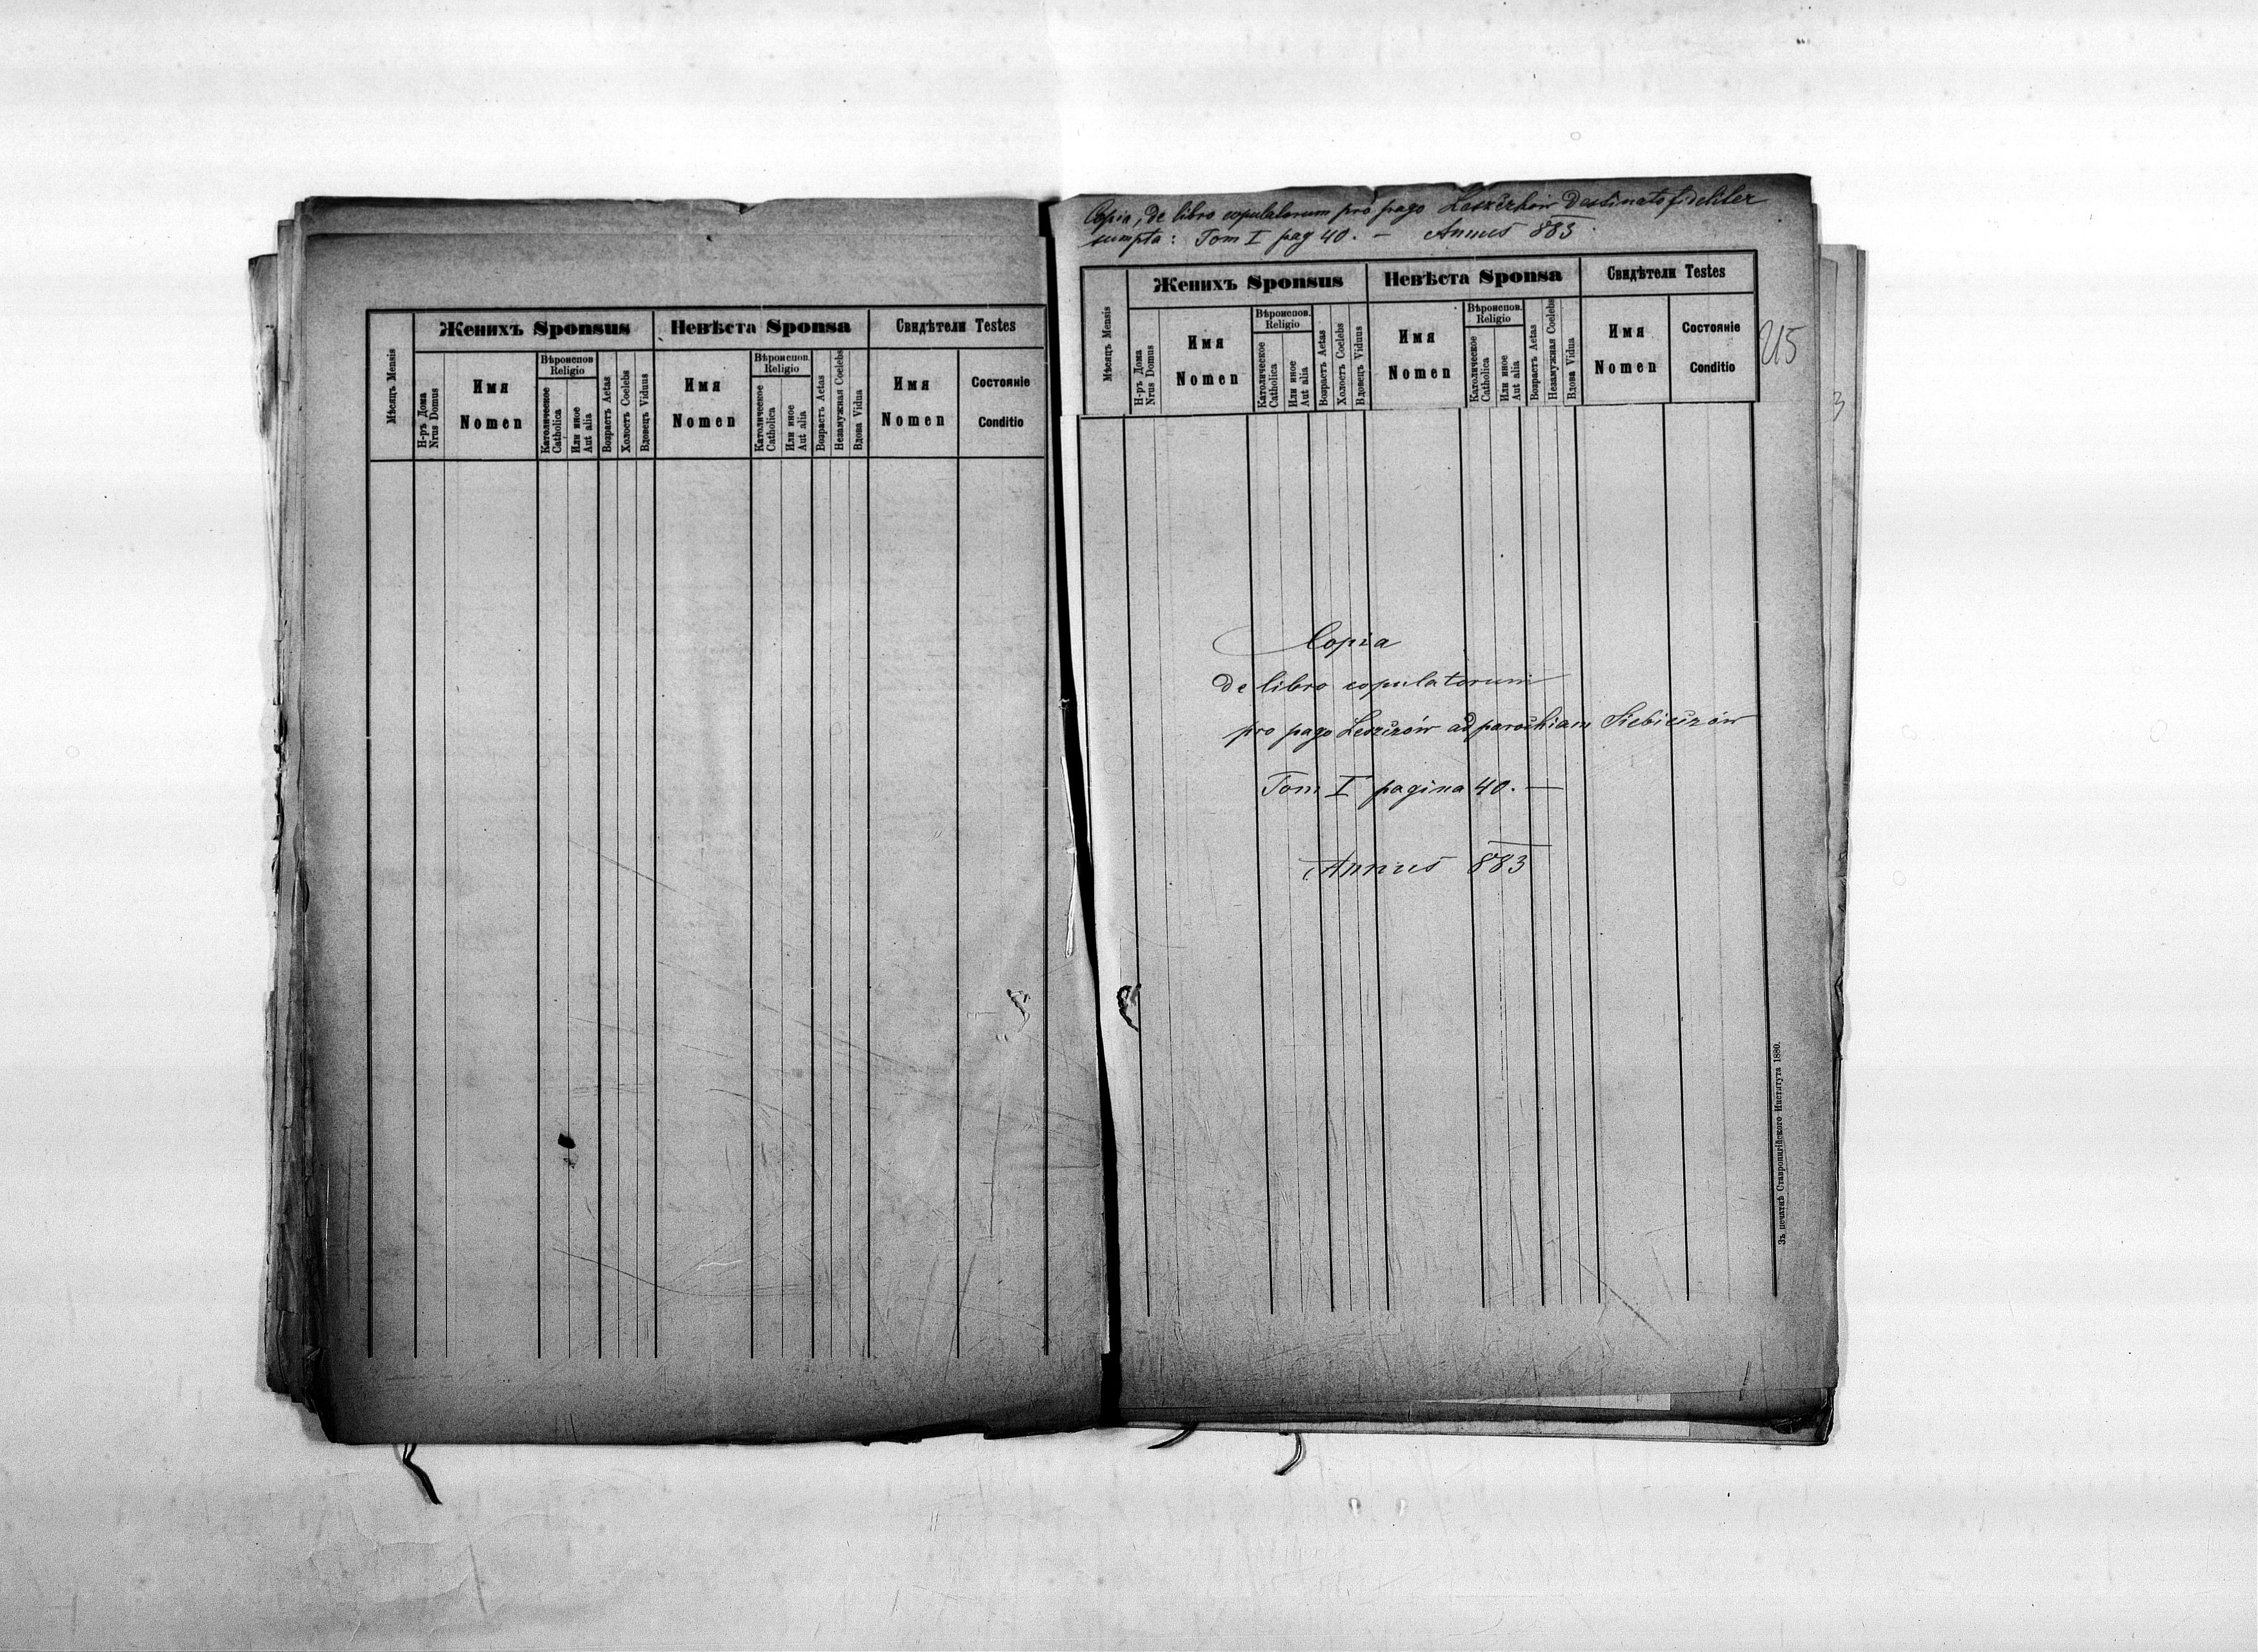 Женихъ Sponsus
Невѣста Sponsa
Свидѣтели Testes
Мѣсяцъ Mensis
Н-ръ Дома
Nrus Domus
Имя
Nomen
Вѣроиспов
Religio
Католическое
Catholica
Или иное
Aut alia
Возрастъ Aetas
Холостъ Coelebs
Вдовецъ Viduus
Имя
Nomen
Вѣроиспов.
Religio
Католическое
Catholica
Или иное
Aut alia
Возрастъ Aetas
Незамужная Coelebs
Вдова Vidua
Имя
Nomen
Состояніе
Conditio
Copia, de libro copulatorum pro pago destinato fideliter
sumpta: Tom I pag 40. — Annus 883.
Женихъ Sponsus
Невѣста Sponsa
Свидѣтели Testes
Мѣсяцъ Mensis
Н-ръ Дома
Nrus Domus
Имя
Nomen
Вѣроиспов.
Religio
Католическое
Catholica
Или иное
Aut alia
Возрастъ Aetas
Холостъ Coelebs
Вдовецъ Viduus
Имя
Nomen
Вѣроиспов.
Religio
Католическое
Catholica
Или иное
Aut alia
Возрастъ Aetas
Незамужная Coelebs
Вдова Vidua
Имя
Nomen
Состояніе
Conditio
Copia
de libro copulatorum
pro pago ad parochiam
Tom I pagina 40. —
Annus 883
Зъ печатнѣ Ставропигійского Института 1880.